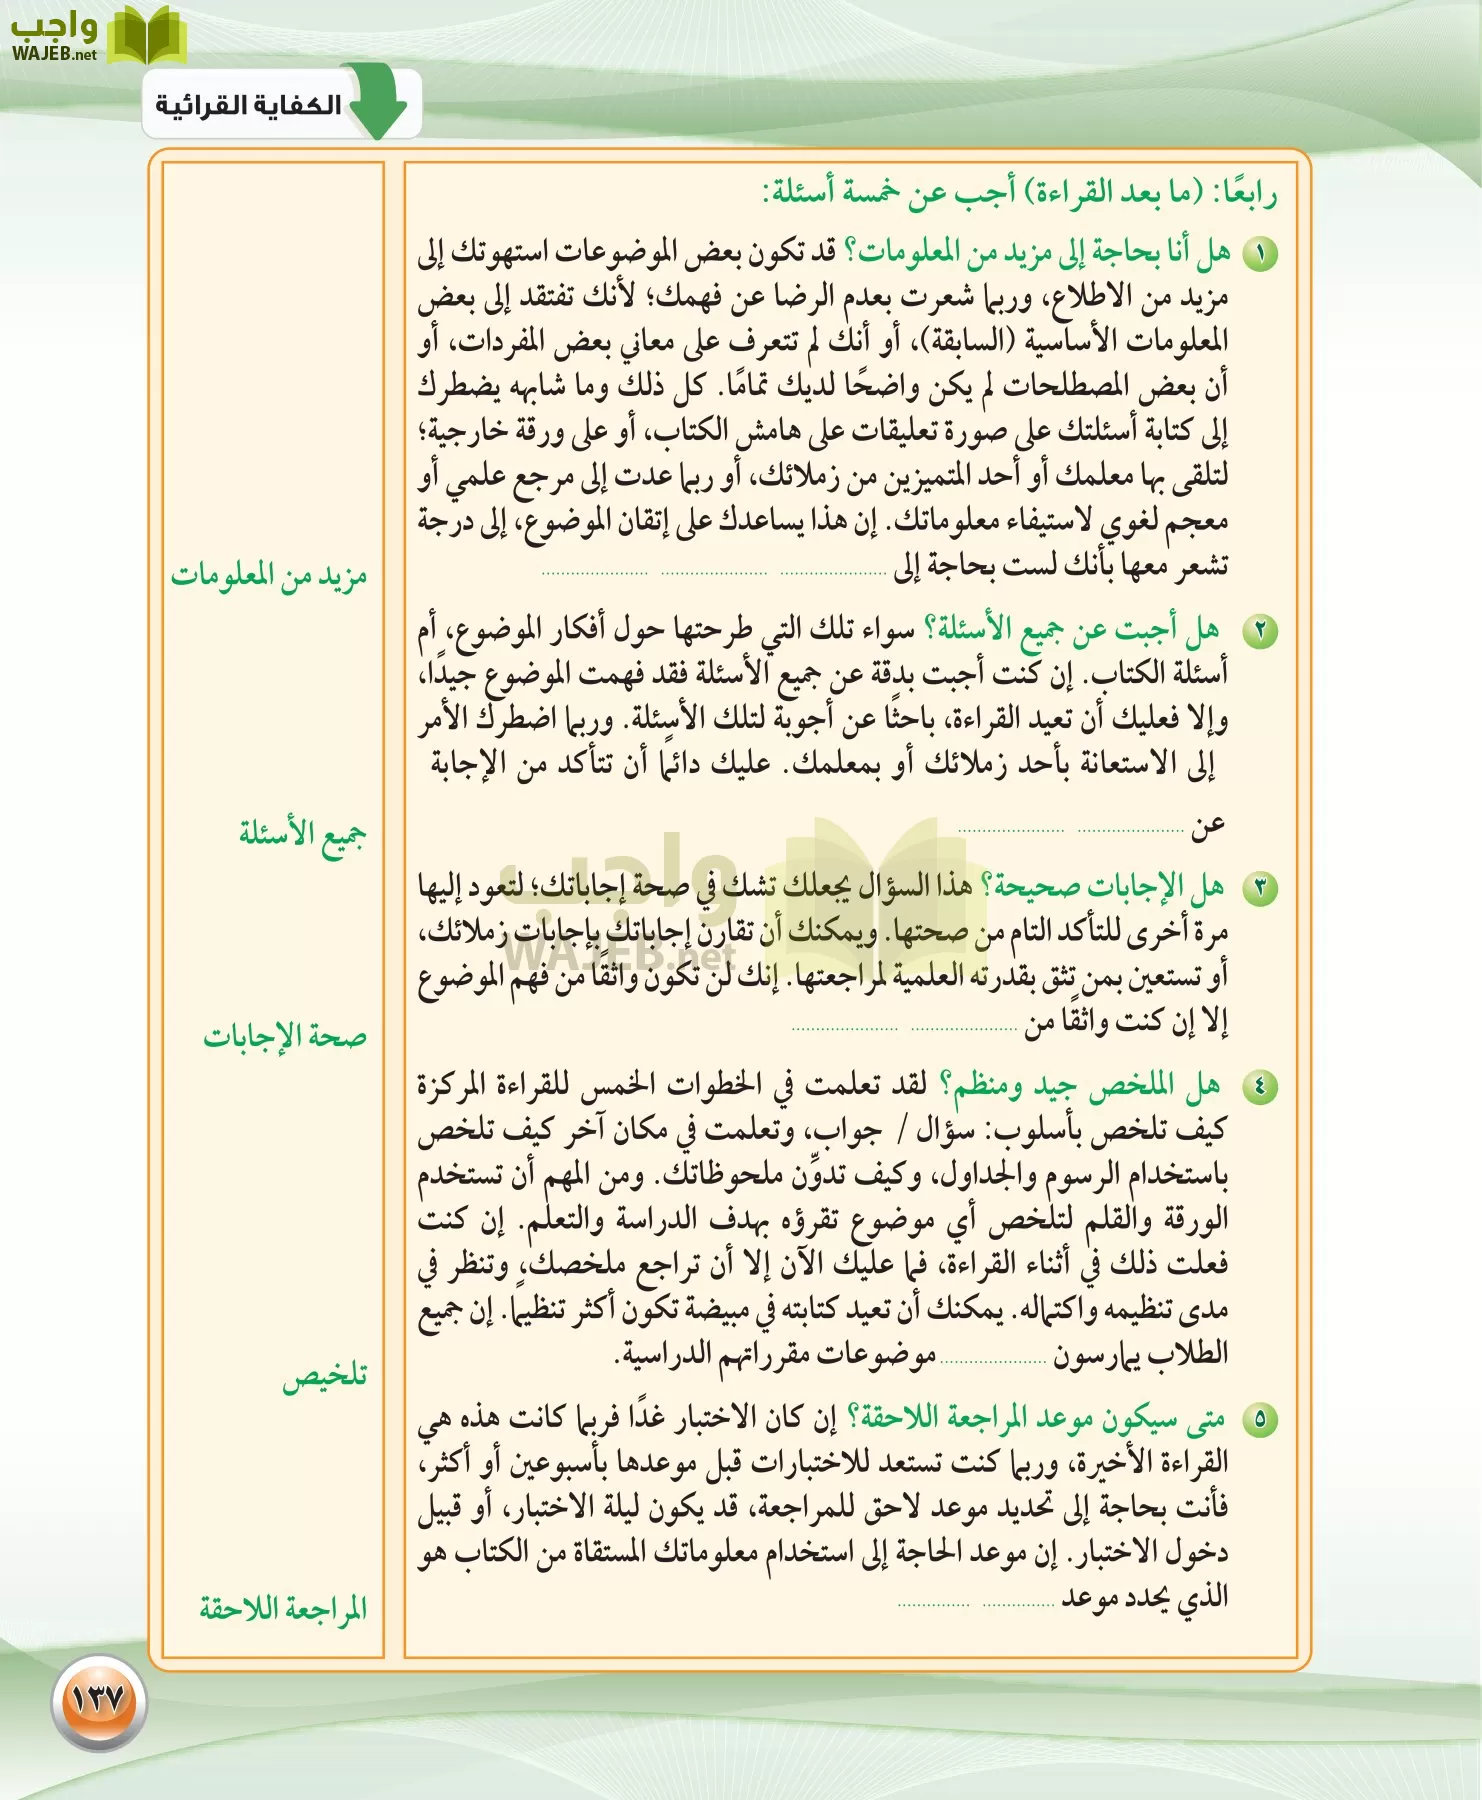 واجب
WAJEB.net
الكفاية القرائية
رابعًا: (ما بعد القراءة) أجب عن خمسة أسئلة:
١ هل أنا بحاجة إلى مزيد من المعلومات؟ قد تكون بعض الموضوعات استهوتك إلى
مزيد من الاطلاع، وربما شعرت بعدم الرضا عن فهمك؛ لأنك تفتقد إلى بعض
المعلومات الأساسية (السابقة)، أو أنك لم تتعرف على معاني بعض المفردات، أو
أن بعض المصطلحات لم يكن واضحًا لديك تمامًا. كل ذلك وما شابهه يضطرك
إلى كتابة أسئلتك على صورة تعليقات على هامش الكتاب، أو على ورقة خارجية؛
لتلقى بها معلمك أو أحد المتميزين من زملائك، أو ربما عدت إلى مرجع علمي أو
معجم لغوي لاستيفاء معلوماتك. إن هذا يساعدك على إتقان الموضوع، إلى درجة
تشعر معها بأنك لست بحاجة إلى ..................... ..................... .....................
مزيد من المعلومات
٢ هل أجبت عن جميع الأسئلة؟ سواء تلك التي طرحتها حول أفكار الموضوع، أم
أسئلة الكتاب. إن كنت أجبت بدقة عن جميع الأسئلة فقد فهمت الموضوع جيدًا،
وإلا فعليك أن تعيد القراءة، باحثًا عن أجوبة لتلك الأسئلة. وربما اضطرك الأمر
إلى الاستعانة بأحد زملائك أو بمعلمك. عليك دائمًا أن تتأكد من الإجابة
عن ..................... .....................
جميع الأسئلة
٣ هل الإجابات صحيحة؟ هذا السؤال يجعلك تشك في صحة إجاباتك؛ لتعود إليها
مرة أخرى للتأكد التام من صحتها. ويمكنك أن تقارن إجاباتك بإجابات زملائك،
أو تستعين بمن تثق بقدرته العلمية لمراجعتها. إنك لن تكون واثقًا من فهم الموضوع
إلا إن كنت واثقًا من ..................... .....................
صحة الإجابات
واجب
WAJEB.net
٤ هل الملخص جيد ومنظم؟ لقد تعلمت في الخطوات الخمس للقراءة المركزة
كيف تلخص بأسلوب: سؤال / جواب، وتعلمت في مكان آخر كيف تلخص
باستخدام الرسوم والجداول، وكيف تدوِّن ملحوظاتك. ومن المهم أن تستخدم
الورقة والقلم لتلخص أي موضوع تقرؤه بهدف الدراسة والتعلم. إن كنت
فعلت ذلك في أثناء القراءة، فما عليك الآن إلا أن تراجع ملخصك، وتنظر في
مدى تنظيمه واكتماله. يمكنك أن تعيد كتابته في مبيضة تكون أكثر تنظيمًا. إن جميع
الطلاب يمارسون ..................... موضوعات مقرراتهم الدراسية.
تلخيص
٥ متى سيكون موعد المراجعة اللاحقة؟ إن كان الاختبار غدًا فربما كانت هذه هي
القراءة الأخيرة، وربما كنت تستعد للاختبارات قبل موعدها بأسبوعين أو أكثر،
فأنت بحاجة إلى تحديد موعد لاحق للمراجعة، قد يكون ليلة الاختبار، أو قبيل
دخول الاختبار. إن موعد الحاجة إلى استخدام معلوماتك المستقاة من الكتاب هو
الذي يحدد موعد ............... ...............
المراجعة اللاحقة
١٣٧